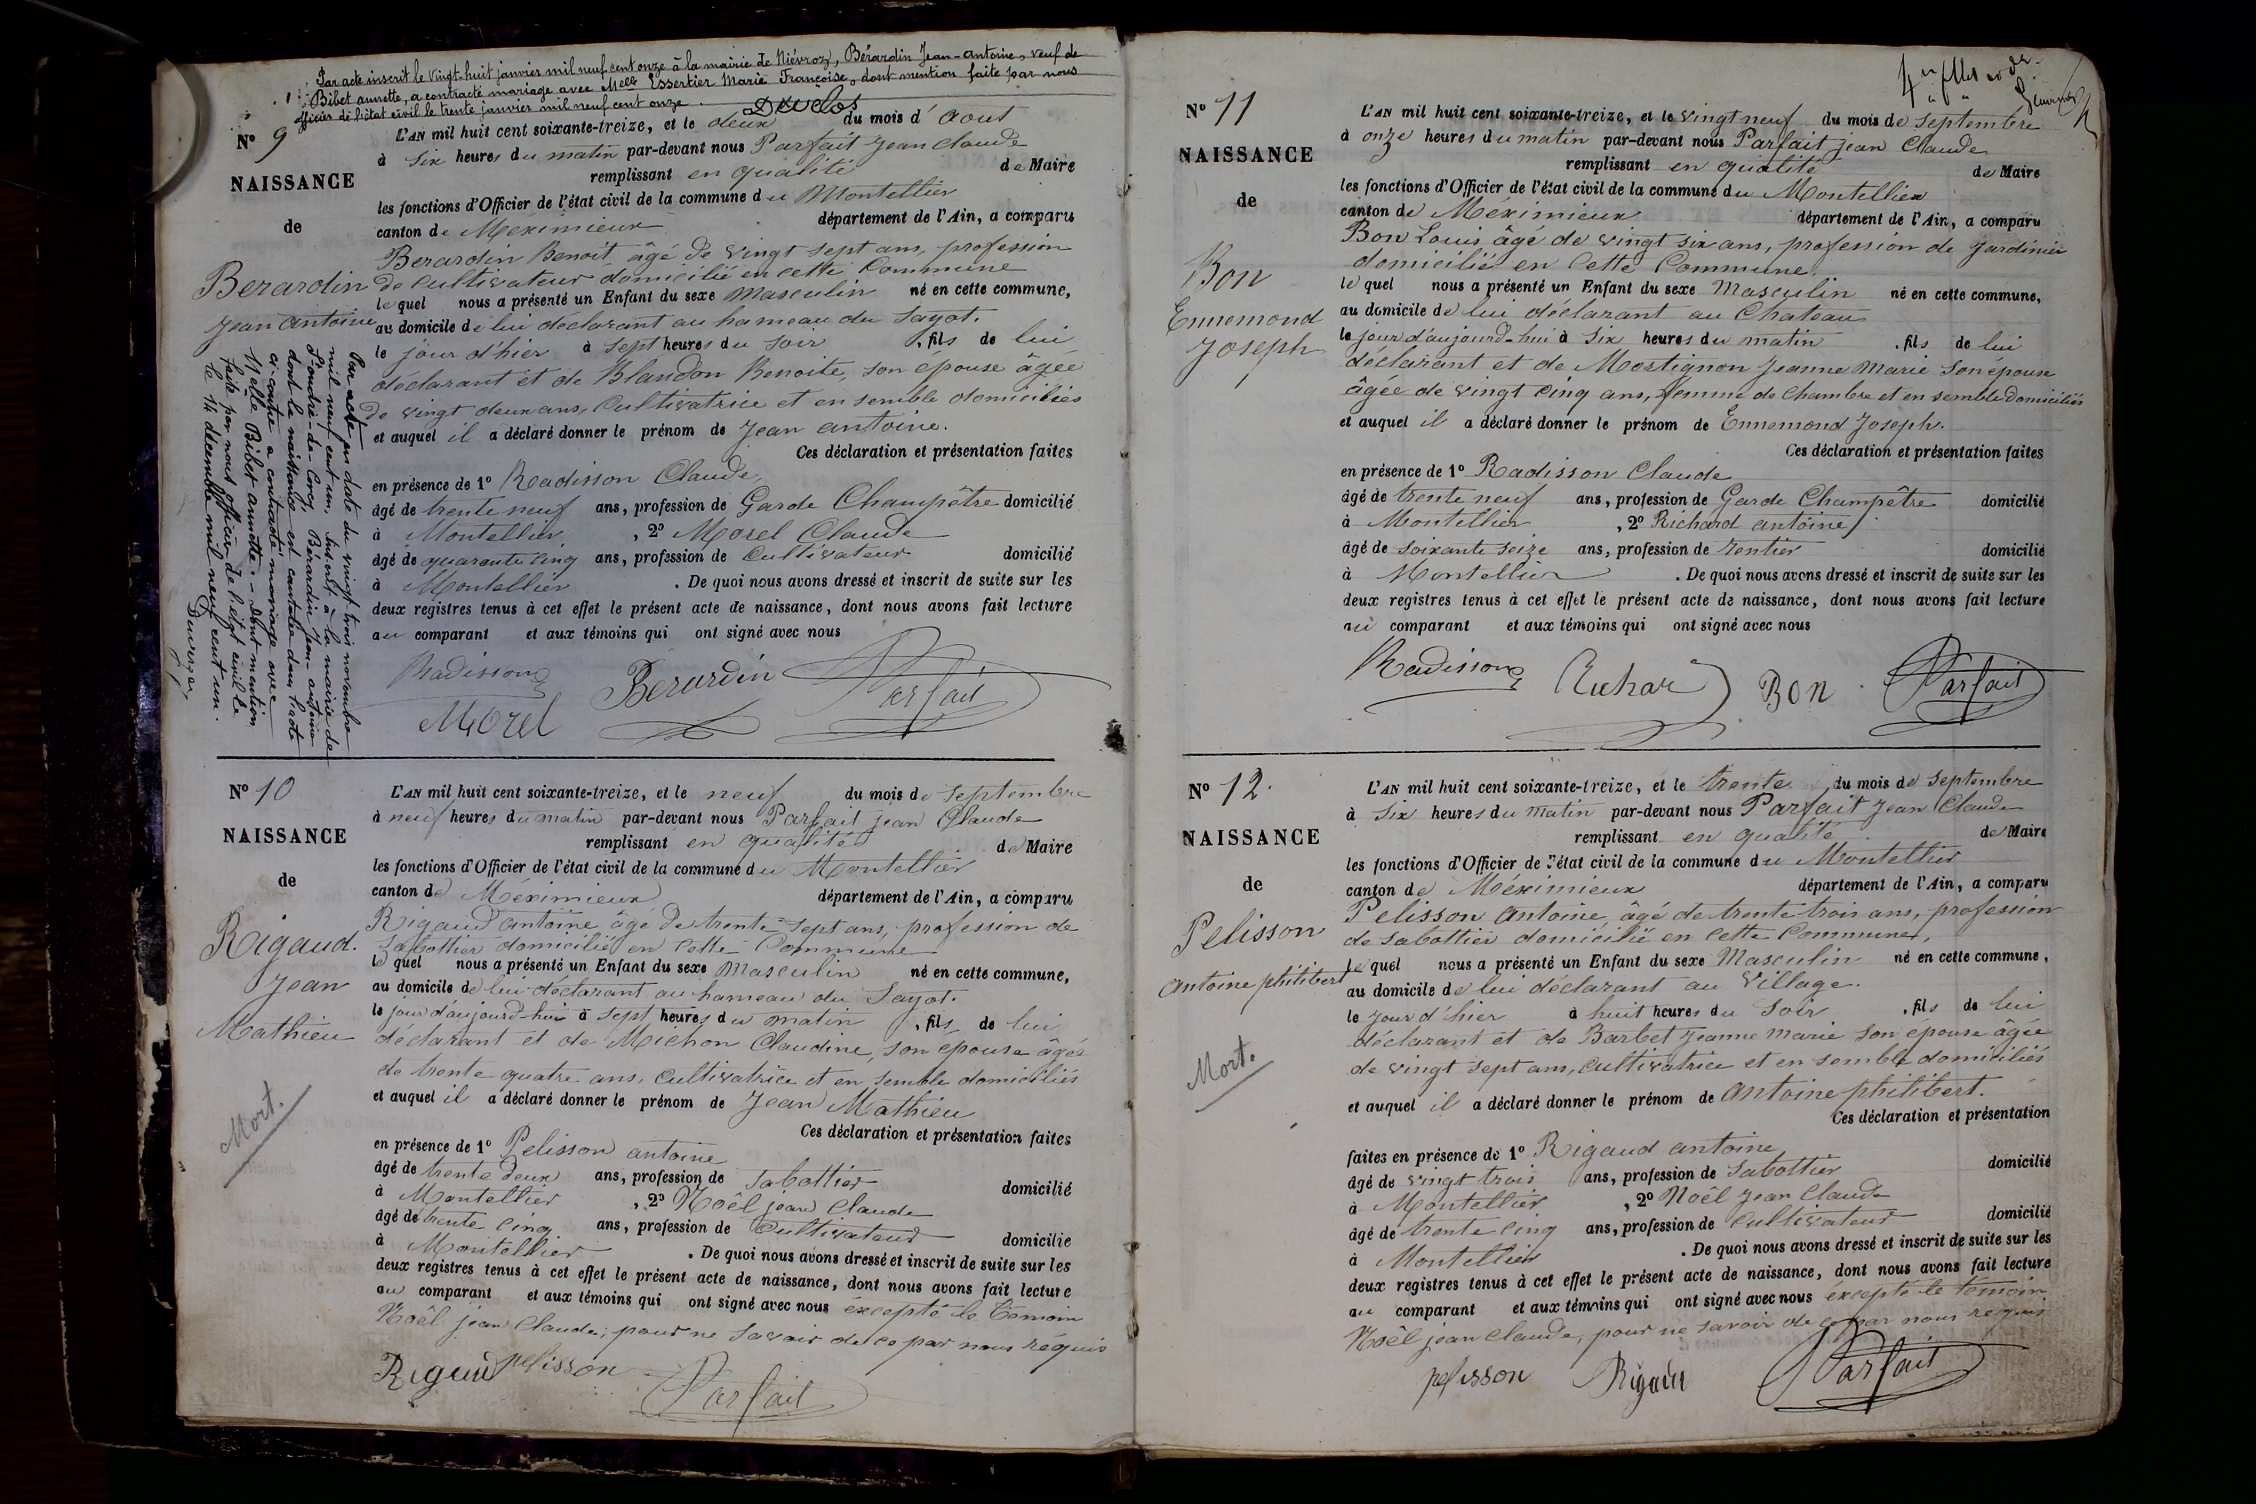 Par acte inscrit le vingt-huit janvier mil neuf cent onze à la mairie de Niévroz, Bérardin Jean-Antoine, veuf de
Bibet annette, a contracté mariage avec Melle Essertier Marie Françoise, dont mention faite par nous
officier de l'état civil le trente janvier mil neuf cent onze.
Duclos
N° 9
NAISSANCE
de
Berardin
Jean Antoine
Par acte en date du vingt trois novembre
mil neuf cent un, inscrit à la mairie de
St-André-de-Corcy, Bérardin Jean-antoine
dont la naissance est constatée dans l'acte
ci-contre a contracté mariage avec
Melle Bibet annette. - Dont mention
faite par nous officier de l'état civil le
le 14 décembre mil neuf cent un.
L'AN mil huit cent soixante-treize, et le deux du mois d'Aout
à six heures du matin par-devant nous Parfait Jean Claude
remplissant en qualité de Maire
les fonctions d'Officier de l'état civil de la commune du Montellier
canton de Meximieux département de l'Ain, a comparu
Berardin Benoit, âgé de vingt sept ans, profession
de Cultivateur domicilié en cette Commune
le quel nous a présenté un Enfant du sexe Masculin né en cette commune,
au domicile de lui déclarant au hameau du Sayot.
le jour d'hier à sept heures du soir, fils de lui
déclarant et de Blandon Benoite, son épouse âgée
de vingt deux ans, Cultivatrice et en semble domiciliés
et auquel il a déclaré donner le prénom de Jean antoine.
Ces déclaration et présentation faites
en présence de 1° Radisson Claude,
âgé de trente neuf ans, profession de Garde Champêtre domicilié
à Montellier, 2° Morel Claude
âgé de quarante cinq ans, profession de Cultivateur domicilié
à Montellier. De quoi nous avons dressé et inscrit de suite sur les
deux registres tenus à cet effet le présent acte de naissance, dont nous avons fait lecture
au comparant et aux témoins qui ont signé avec nous
Radisson Berardin Parfait
Morel
N° 10
NAISSANCE
de
Rigaud.
Jean
Mathieu
Mort.
L'AN mil huit cent soixante-treize, et le neuf du mois de Septembre
à neuf heures du matin par-devant nous Parfait jean Claude
remplissant en qualité de Maire
les fonctions d'Officier de l'état civil de la commune du Montellier
canton de Méximieux département de l'Ain, a comparu
Rigaud Antoine âgé de trente sept ans, profession de
Sabottier domicilié en cette Commune
le quel nous a présenté un Enfant du sexe Masculin né en cette commune,
au domicile de lui déclarant au hameau du Sayot.
le jour d'aujourd-hui à sept heures du matin, fils de lui
déclarant et de Michon Claudine, son épouse âgée
de trente quatre ans, Cultivatrice et en semble domiciliés
et auquel il a déclaré donner le prénom de Jean Mathieu
Ces déclaration et présentation faites
en présence de 1° Pelisson antoine
âgé de trente deux ans, profession de Sabottier domicilié
à Montellier, 2° Noël jean Claude
âgé de trente cinq ans, profession de Cultivateur domicilié
à Montellier. De quoi nous avons dressé et inscrit de suite sur les
deux registres tenus à cet effet le présent acte de naissance, dont nous avons fait lecture
au comparant et aux témoins qui ont signé avec nous excepté le témoin
Noël jean Claude, pour ne savoir de ce par nous réquis
Rigaud pelisson Parfait
N° 11
NAISSANCE
de
Bon
Ennemond
Joseph
L'AN mil huit cent soixante-treize, et le vingt neuf du mois de Septembre
à onze heures du matin par-devant nous Parfait jean Claude
remplissant en qualité de Maire
les fonctions d'Officier de l'état civil de la commune du Montellier
canton de Méximieux département de l'Ain, a comparu
Bon Louis âgé de vingt six ans, profession de jardinier
domicilié en cette Commune.
le quel nous a présenté un Enfant du sexe Masculin né en cette commune,
au domicile de lui déclarant au Chateau
le jour d'aujourd-hui à six heures du matin, fils de lui
déclarant et de Mortignon Jeanne Marie son épouse
âgée de vingt cinq ans, femme de Chambre et en semble domiciliés
et auquel il a déclaré donner le prénom de Ennemond Joseph.
Ces déclaration et présentation faites
en présence de 1° Radisson Claude
âgé de trente neuf ans, profession de Garde Champêtre domicilié
à Montellier, 2° Richard antoine
âgé de soixante seize ans, profession de rentier domicilié
à Montellier. De quoi nous avons dressé et inscrit de suite sur les
deux registres tenus à cet effet le présent acte de naissance, dont nous avons fait lecture
au comparant et aux témoins qui ont signé avec nous
Radisson Richar Bon Parfait
N° 12.
NAISSANCE
de
Pelisson
Antoine philibert
Mort.
L'AN mil huit cent soixante-treize, et le trente du mois de Septembre
à six heures du matin par-devant nous Parfait Jean Claude
remplissant en qualité de Maire
les fonctions d'Officier de l'état civil de la commune du Montellier
canton de Méximieux département de l'Ain, a comparu
Pelisson Antoine, âgé de trente trois ans, profession
de Sabottier domicilié en cette Commune,
le quel nous a présenté un Enfant du sexe Masculin né en cette commune,
au domicile de lui déclarant au Village.
le jour d'hier à huit heures du Soir, fils de lui
déclarant et de Barbet Jeanne Marie son épouse âgée
de vingt sept ans, cultivatrice et en semble domiciliés
et auquel il a déclaré donner le prénom de Antoine philibert.
Ces déclaration et présentation
faites en présence de 1° Rigaud antoine
âgé de vingt trois ans, profession de Sabottier domicilié
à Montellier, 2° Noêl Jean Claude
âgé de trente cinq ans, profession de Cultivateur domicilié
à Montellier. De quoi nous avons dressé et inscrit de suite sur les
deux registres tenus à cet effet le présent acte de naissance, dont nous avons fait lecture
au comparant et aux témoins qui ont signé avec nous excepté le témoin
Noêl jean Claude, pour ne savoir de ce par nous requis
pelisson Rigaud Parfait